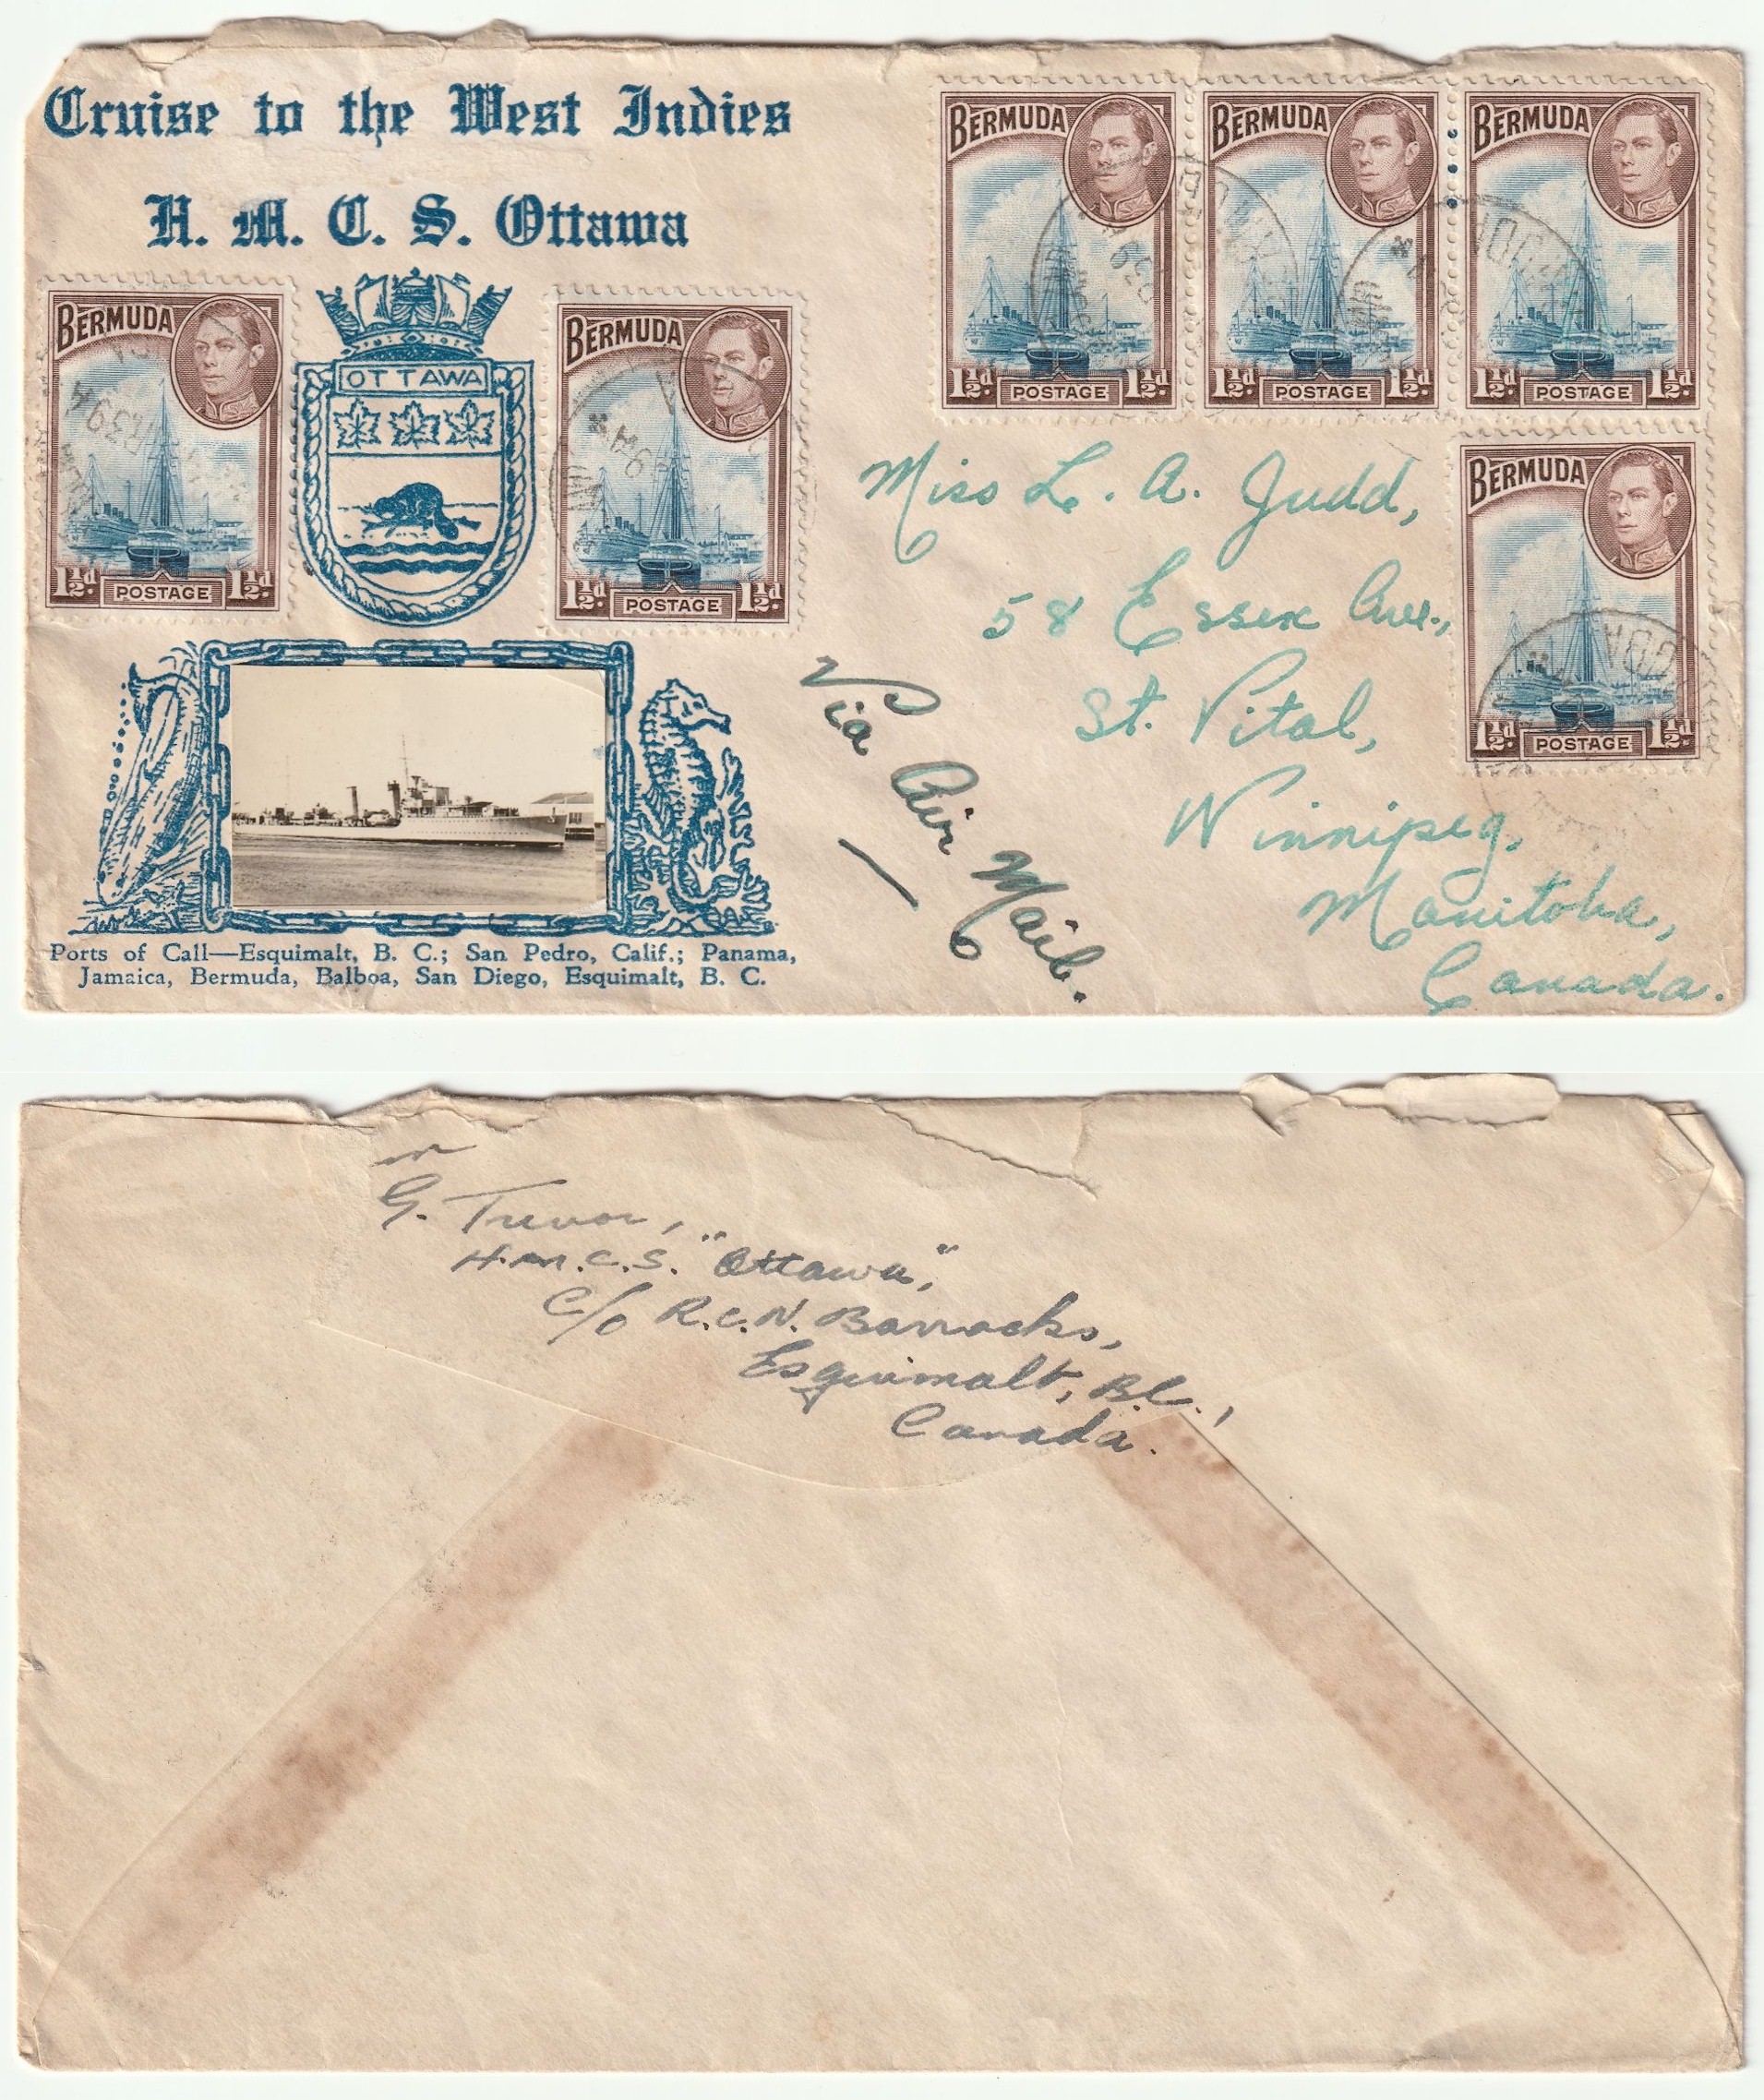 Cruise to the West Indies
H. M. C. S. Ottawa
BERMUDA
1½d. POSTAGE 1½d.
OTTAWA
BERMUDA
1½d. POSTAGE 1½d.
BERMUDA
1½d. POSTAGE 1½d.
BERMUDA
1½d. POSTAGE 1½d.
BERMUDA
1½d. POSTAGE 1½d.
BERMUDA
1½d. POSTAGE 1½d.
Ports of Call—Esquimalt, B. C.; San Pedro, Calif.; Panama,
Jamaica, Bermuda, Balboa, San Diego, Esquimalt, B. C.
Via Air Mail.
Miss L. A. Judd,
58 Essex Ave.,
St. Vital,
Winnipeg,
Manitoba,
Canada.
G. Trevor,
H.M.C.S. "Ottawa",
C/o R.C.N. Barracks,
Esquimalt, B.C.,
Canada.